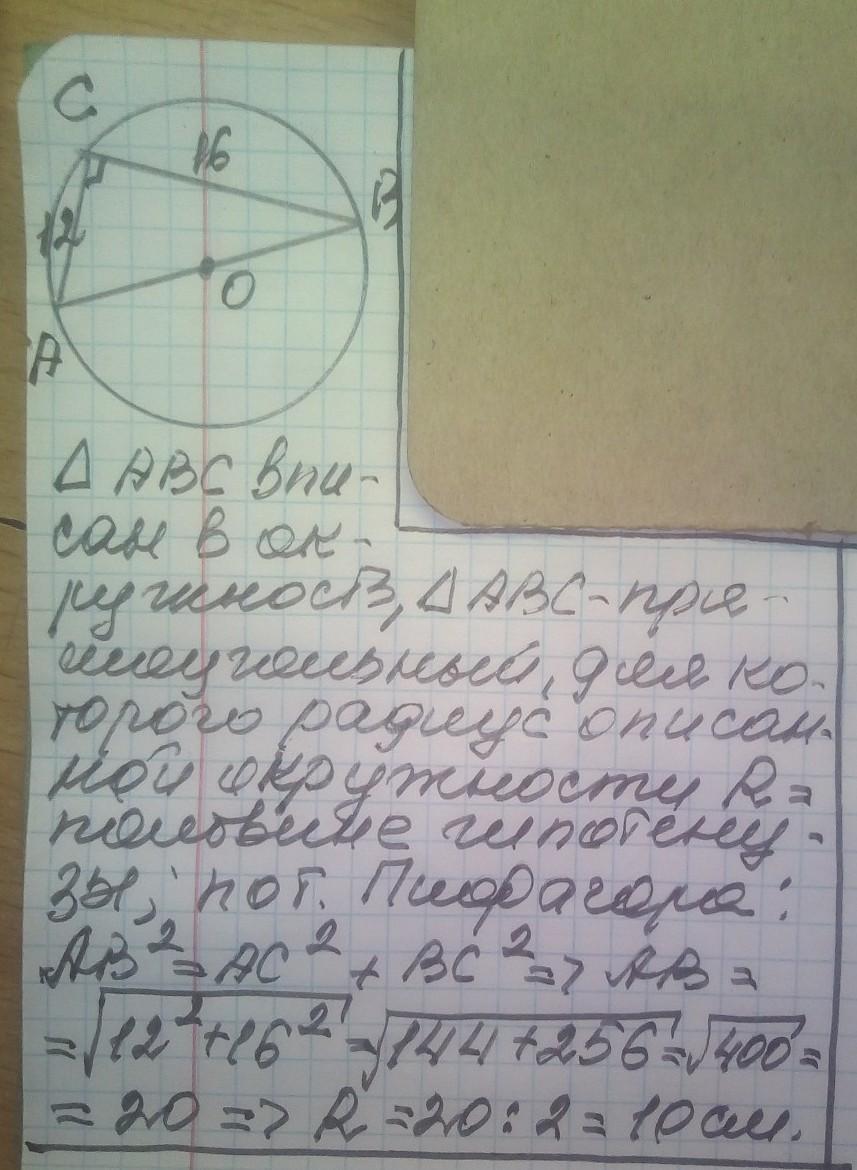 C
16
B
12
O
A
Δ ABC впи-
сан в ок-
ружность, Δ ABC - пря-
моугольный, для ко-
торого радиус описан-
ной окружности R =
половине гипотену-
зы; по т. Пифагора:
AB² = AC² + BC² => AB =
= √12² + 16² = √144 + 256 = √400 =
= 20 => R = 20 : 2 = 10 см.